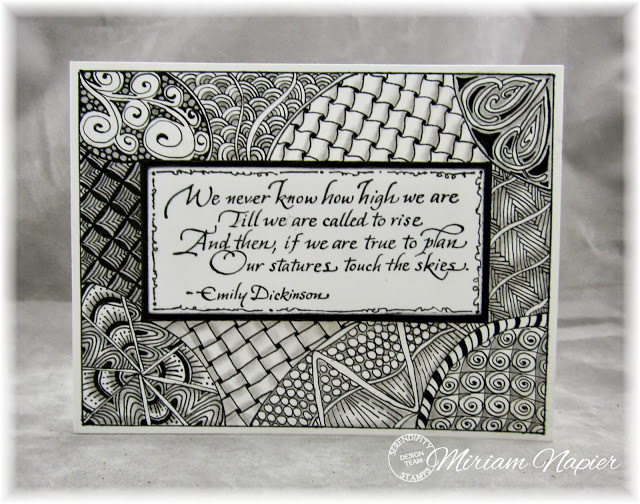 We never know how high we are
Till we are called to rise
And then, if we are true to plan
Our statures touch the skies.
-Emily Dickinson
SERENDIPITY
DESIGN
TEAM
STAMPS
Miriam Napier